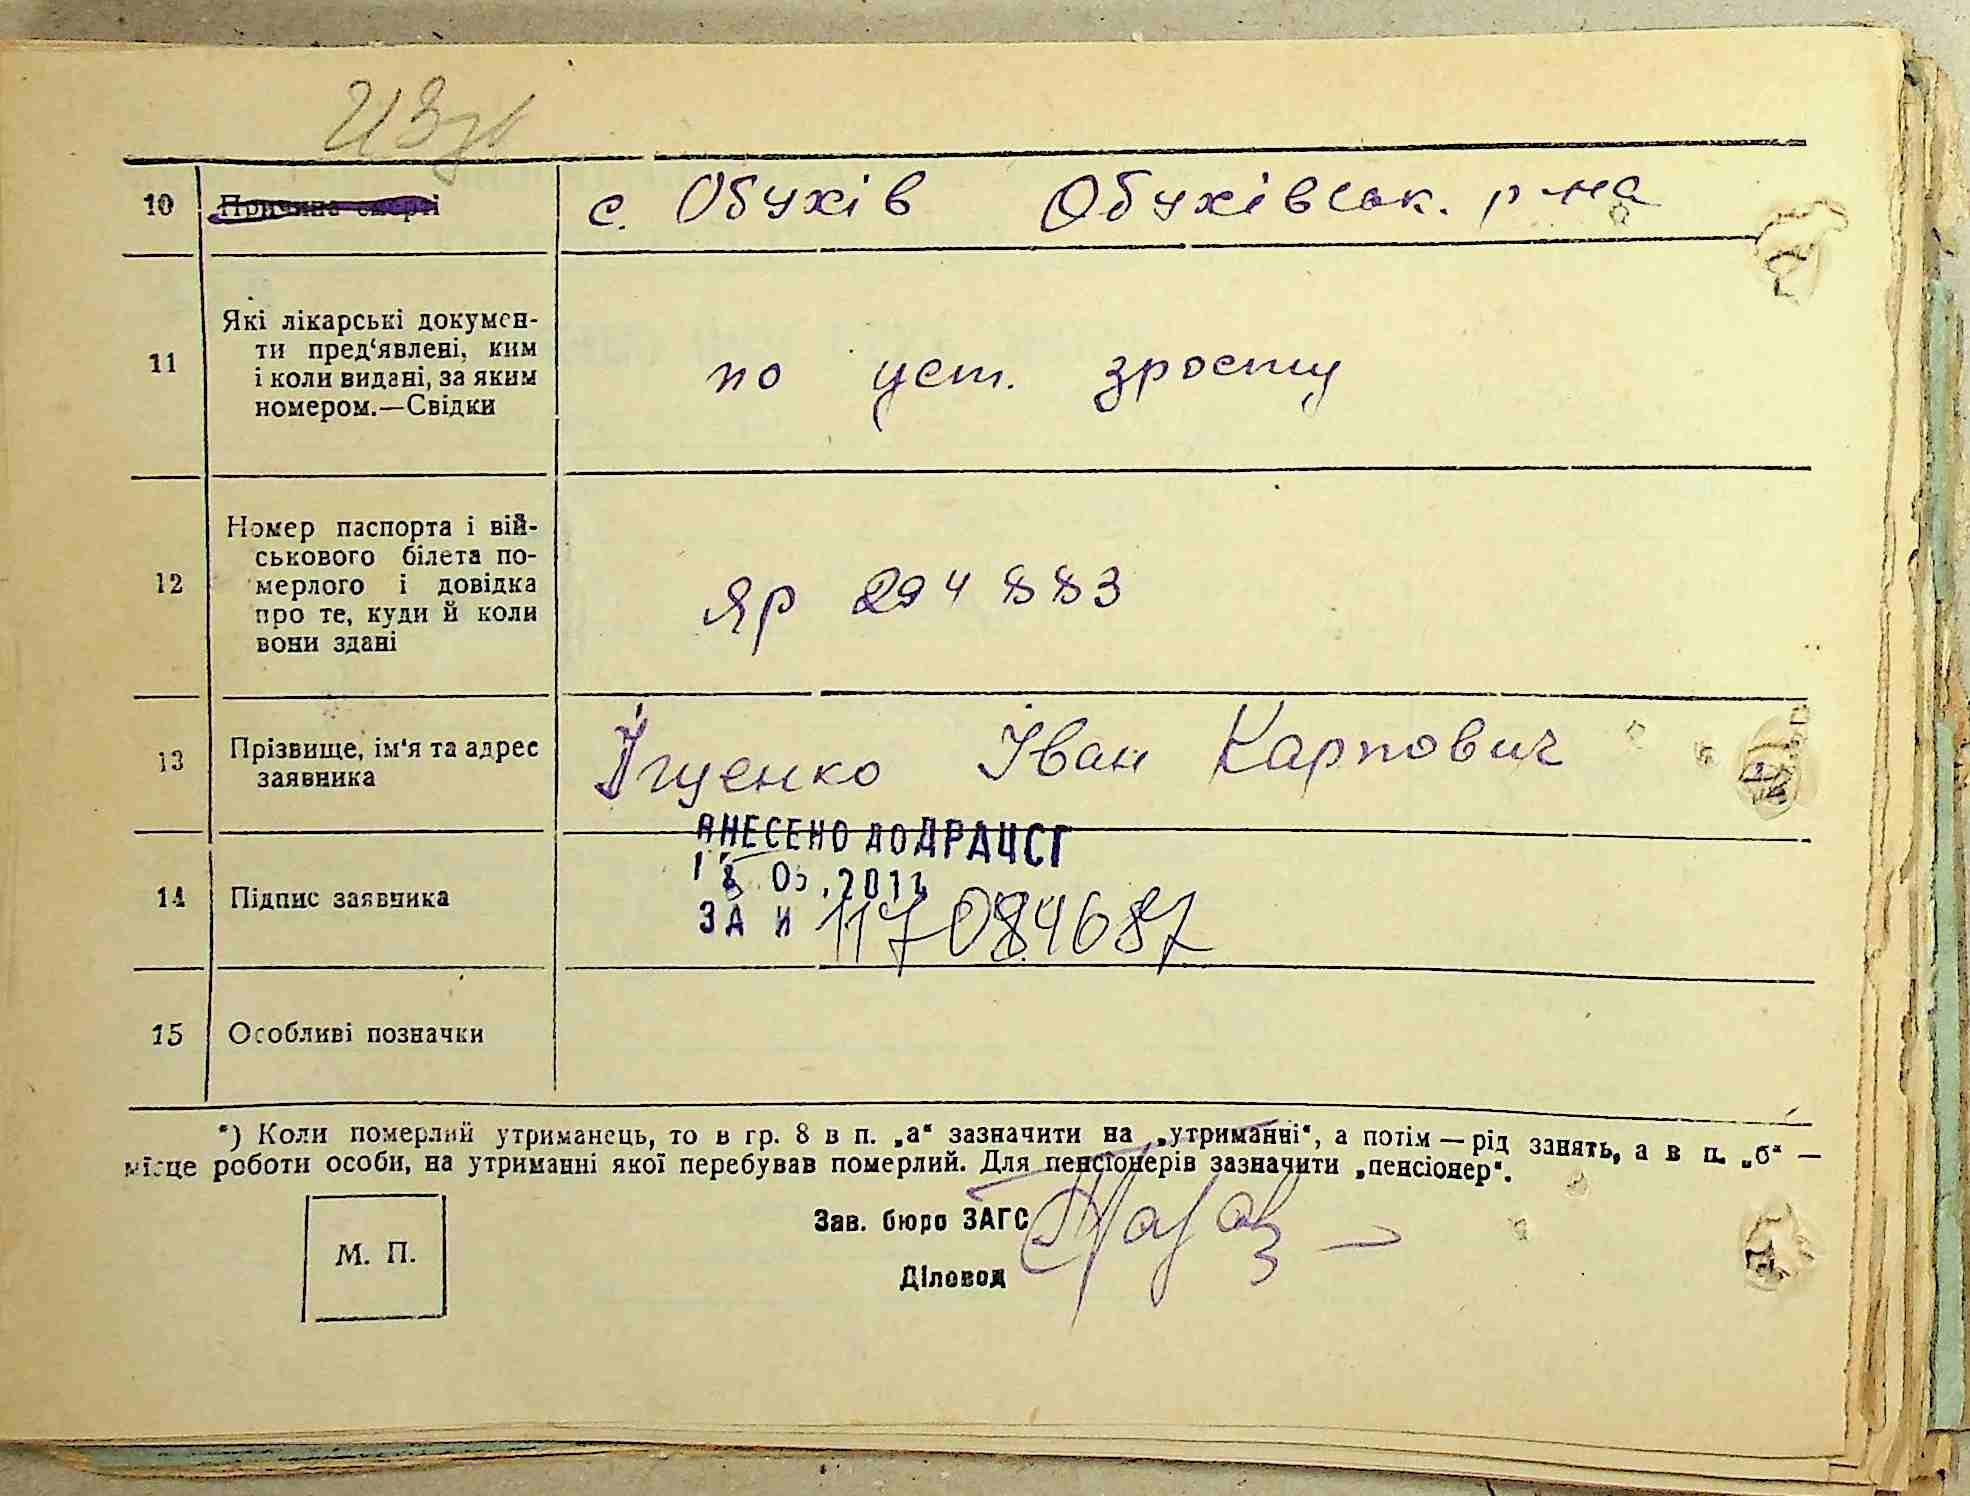 10 Причина смерті с. Обухів Обухівськ. р-на
11 Які лікарські докумен-
ти пред‘явлені, ким
і коли видані, за яким
номером.—Свідки
по уст. зросту
12 Номер паспорта і вій-
ськового білета по-
мерлого і довідка
про те, куди й коли
вони здані
ЯР 294883
13 Прізвище, ім‘я та адрес
заявника
Ігценко Іван Карпович
ВНЕСЕНО ДО ДРАЦСГ
14 Підпис заявника
ЗА И 117084687
15 Особливі позначки
*) Коли померлий утриманець, то в гр. 8 в п. „а“ зазначити на „утриманні“, а потім — рід занять, а в п. „б“ —
місце роботи особи, на утриманні якої перебував померлий. Для пенсіонерів зазначити „пенсіонер“.
М. П.
Зав. бюро ЗАГС
Діловод